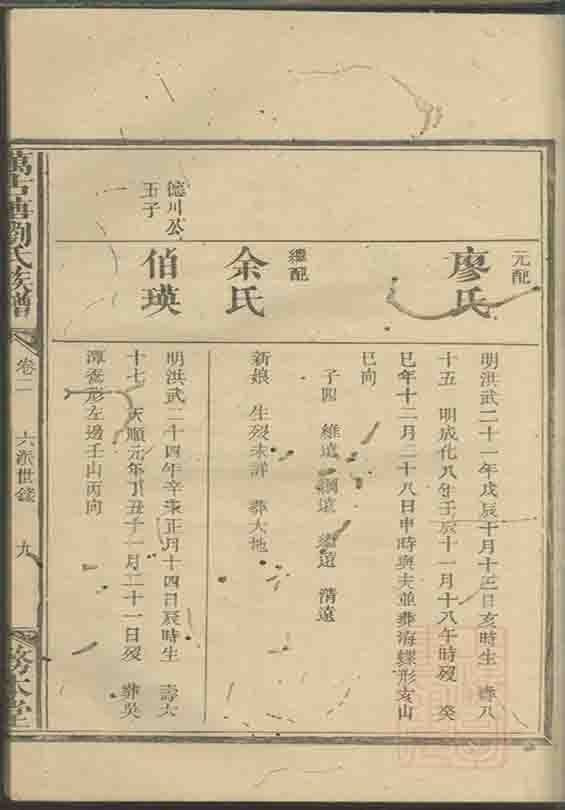 元配
廖氏
明洪武二十一年戊辰十月十三日亥時生 壽八
十五 明成化八年壬辰十一月十八午時歿 癸
巳年十二月二十八日申時與夫並葬海螺形亥山
巳向
子四 維遠 綱遠 繼遠 清遠
繼配
余氏
新娘 生歿未詳 葬大地
德川公
五子
伯瑛
明洪武二十四年辛未正月十四日辰時生 壽六
十七 天順元年丁丑十一月二十一日歿 葬吳
潭鴦形左邊壬山丙向
萬古塘劉氏族譜
卷二 六派世錄 九
務本堂